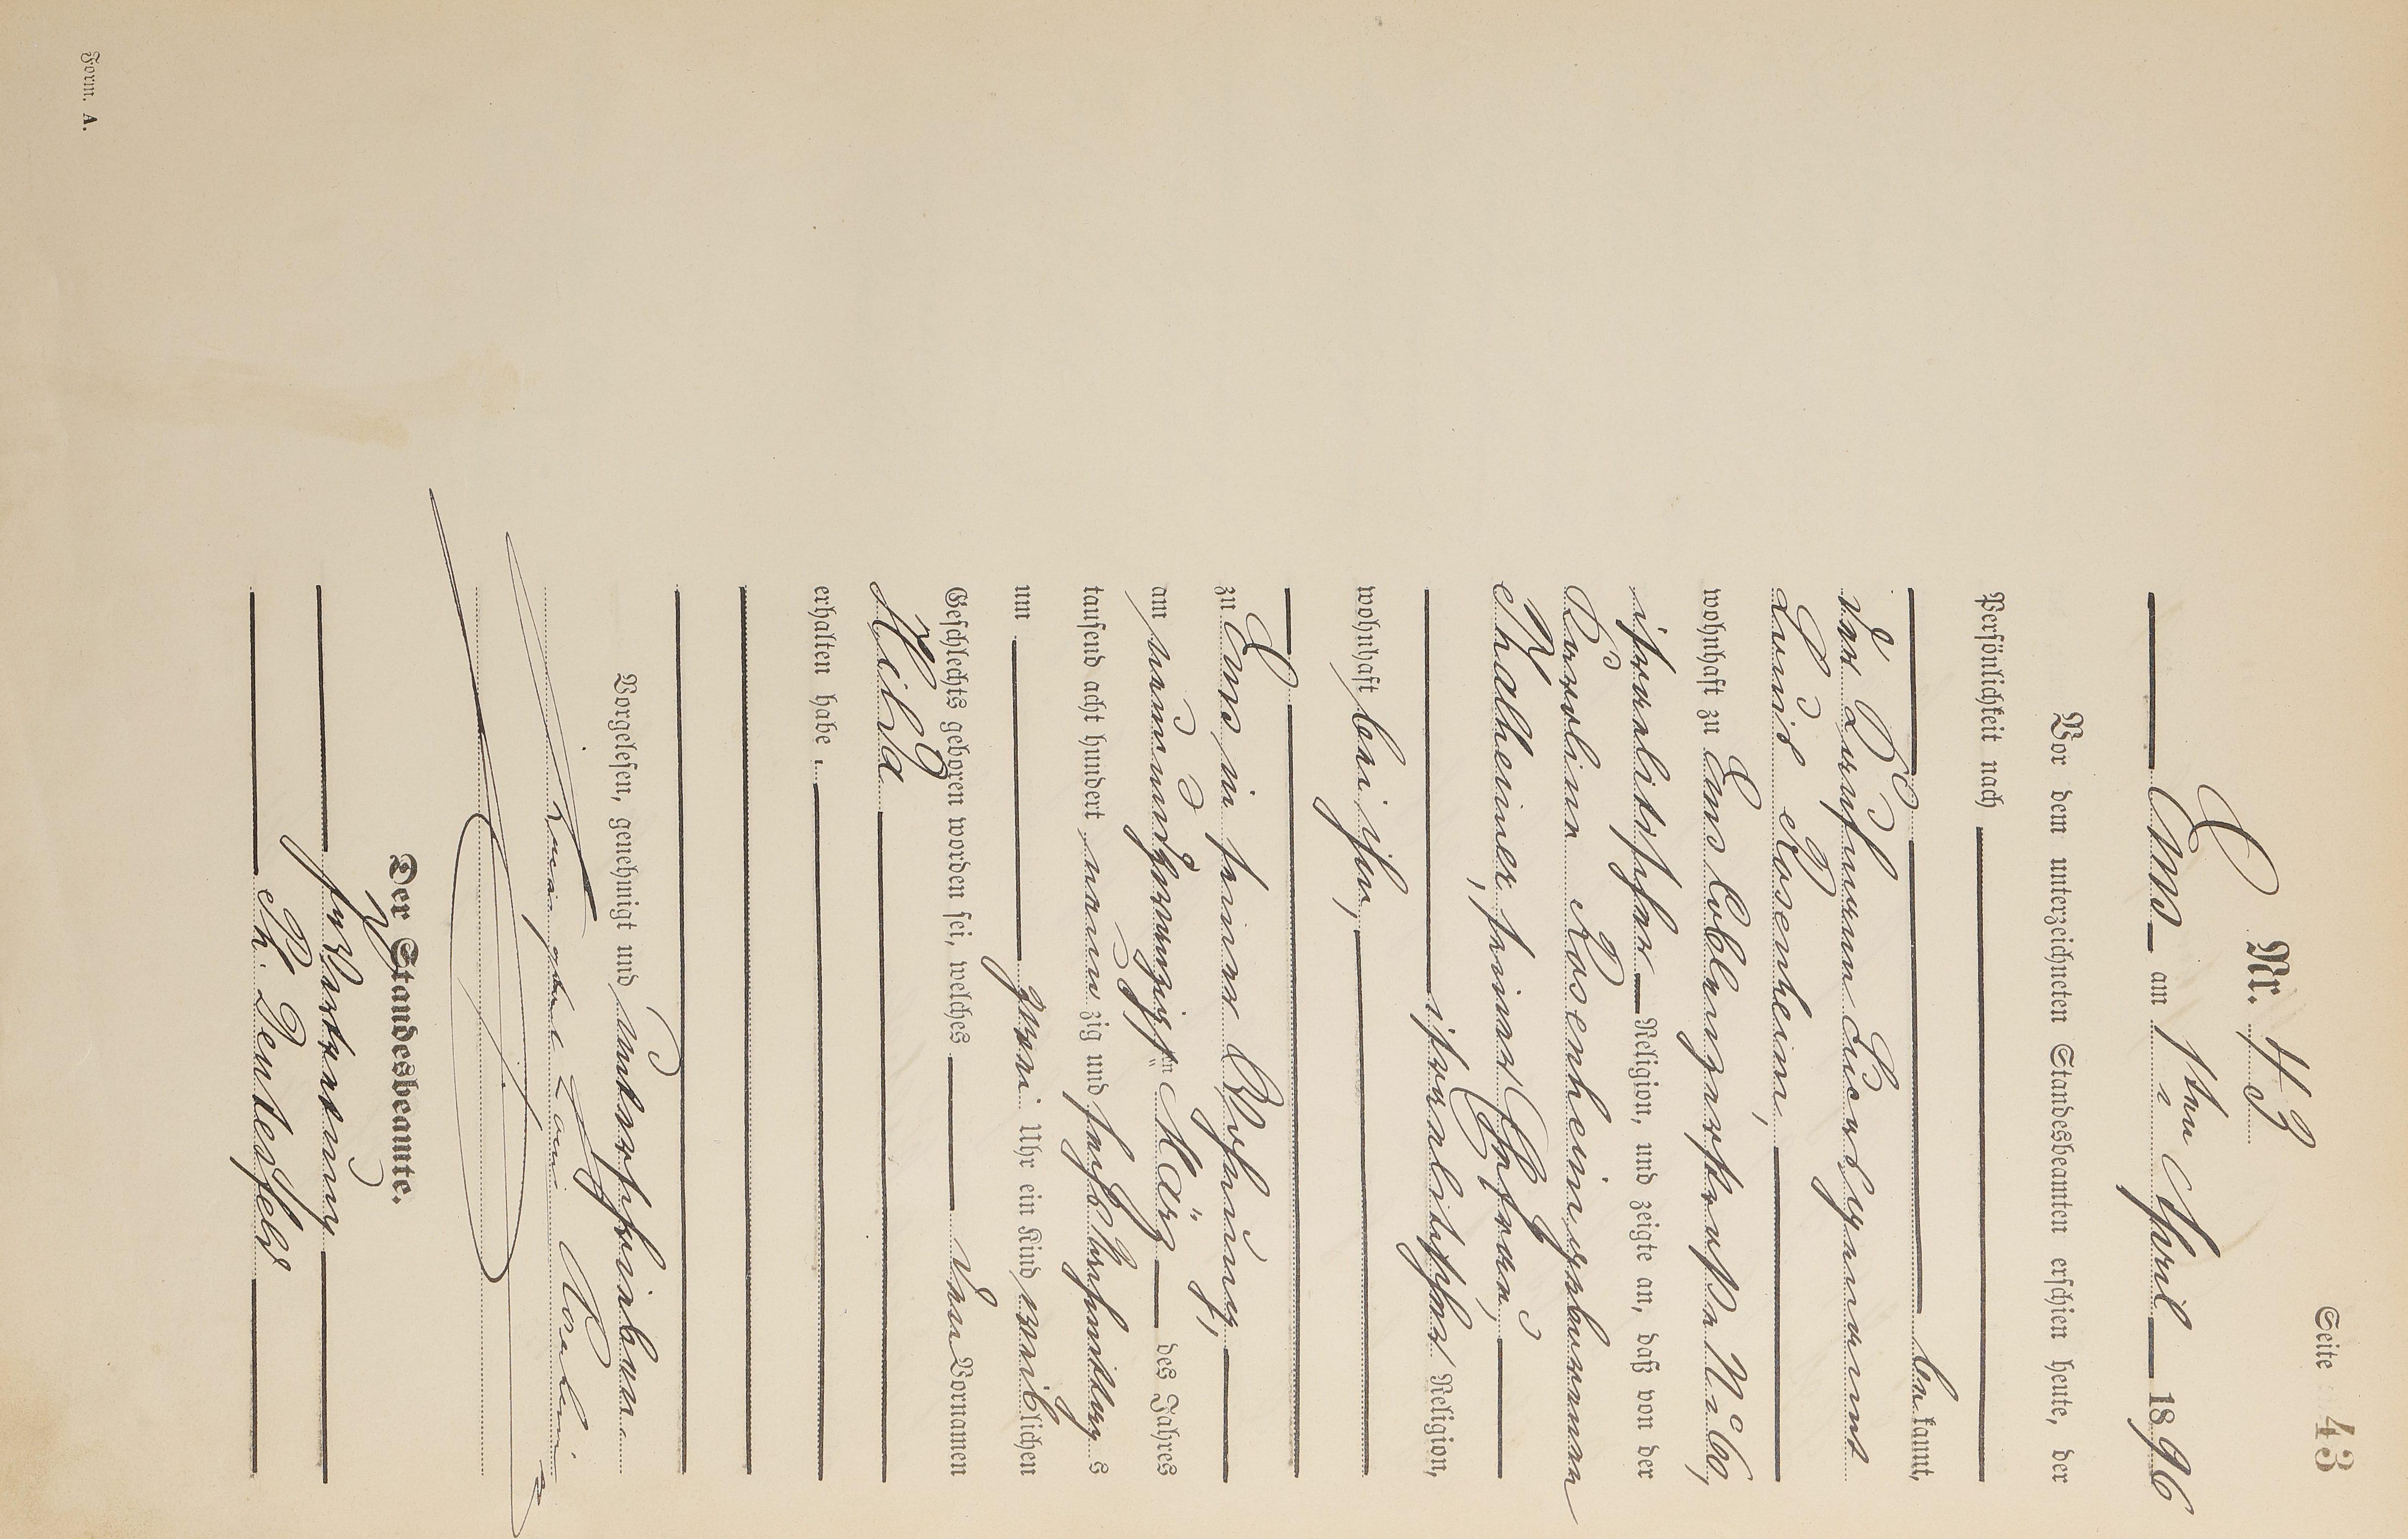 Seite 43
Nr. 43
Ems am 1ten April 1896
Vor dem unterzeichneten Standesbeamten erschien heute, der
Persönlichkeit nach
bekannt,
der Kaufmann Liebmann genannt
Louis Rosenheim,
wohnhaft zu Ems Coblenzerstraße No 60,
israelitischer Religion, und zeigte an, daß von der
Karoline Rosenheim geborenen
Thalheimer, seiner Ehefrau,
israelitischer Religion,
wohnhaft bei ihm,
zu Ems in seiner Wohnung,
am neunundzwanzigsten März des Jahres
tausend acht hundert neunzig und sechs Vormittags
um zwei Uhr ein Kind weiblichen
Geschlechts geboren worden sei, welches den Vornamen
Hilda
erhalten habe.
Vorgelesen, genehmigt und unterschrieben
genannt Louis Rosenheim
Der Standesbeamte.
In Vertretung
Ph. Deudesfeld
Form. A.